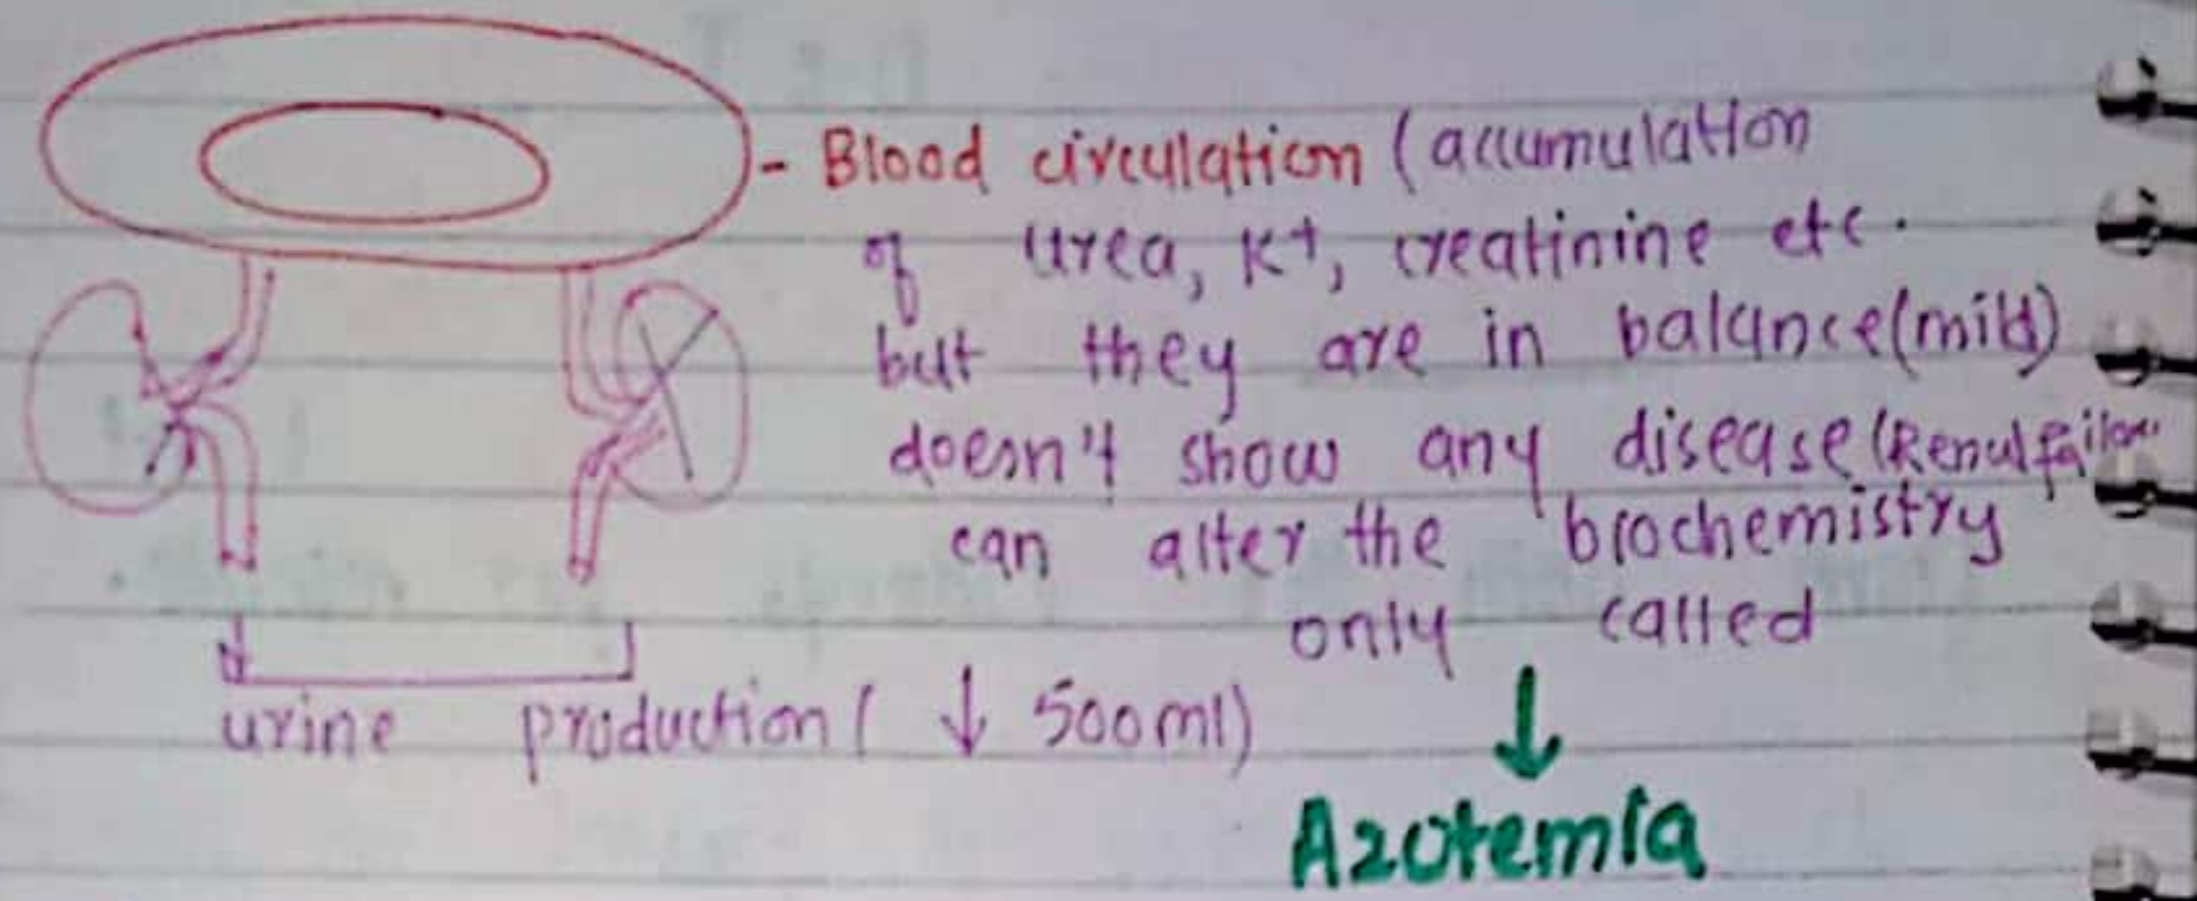 - Blood circulation (accumulation
of urea, K+, creatinine etc.
but they are in balance(mild)
doesn't show any disease (Renal failure
can alter the biochemistry
only called
↓
urine production ( ↓ 500ml)
Azotemia